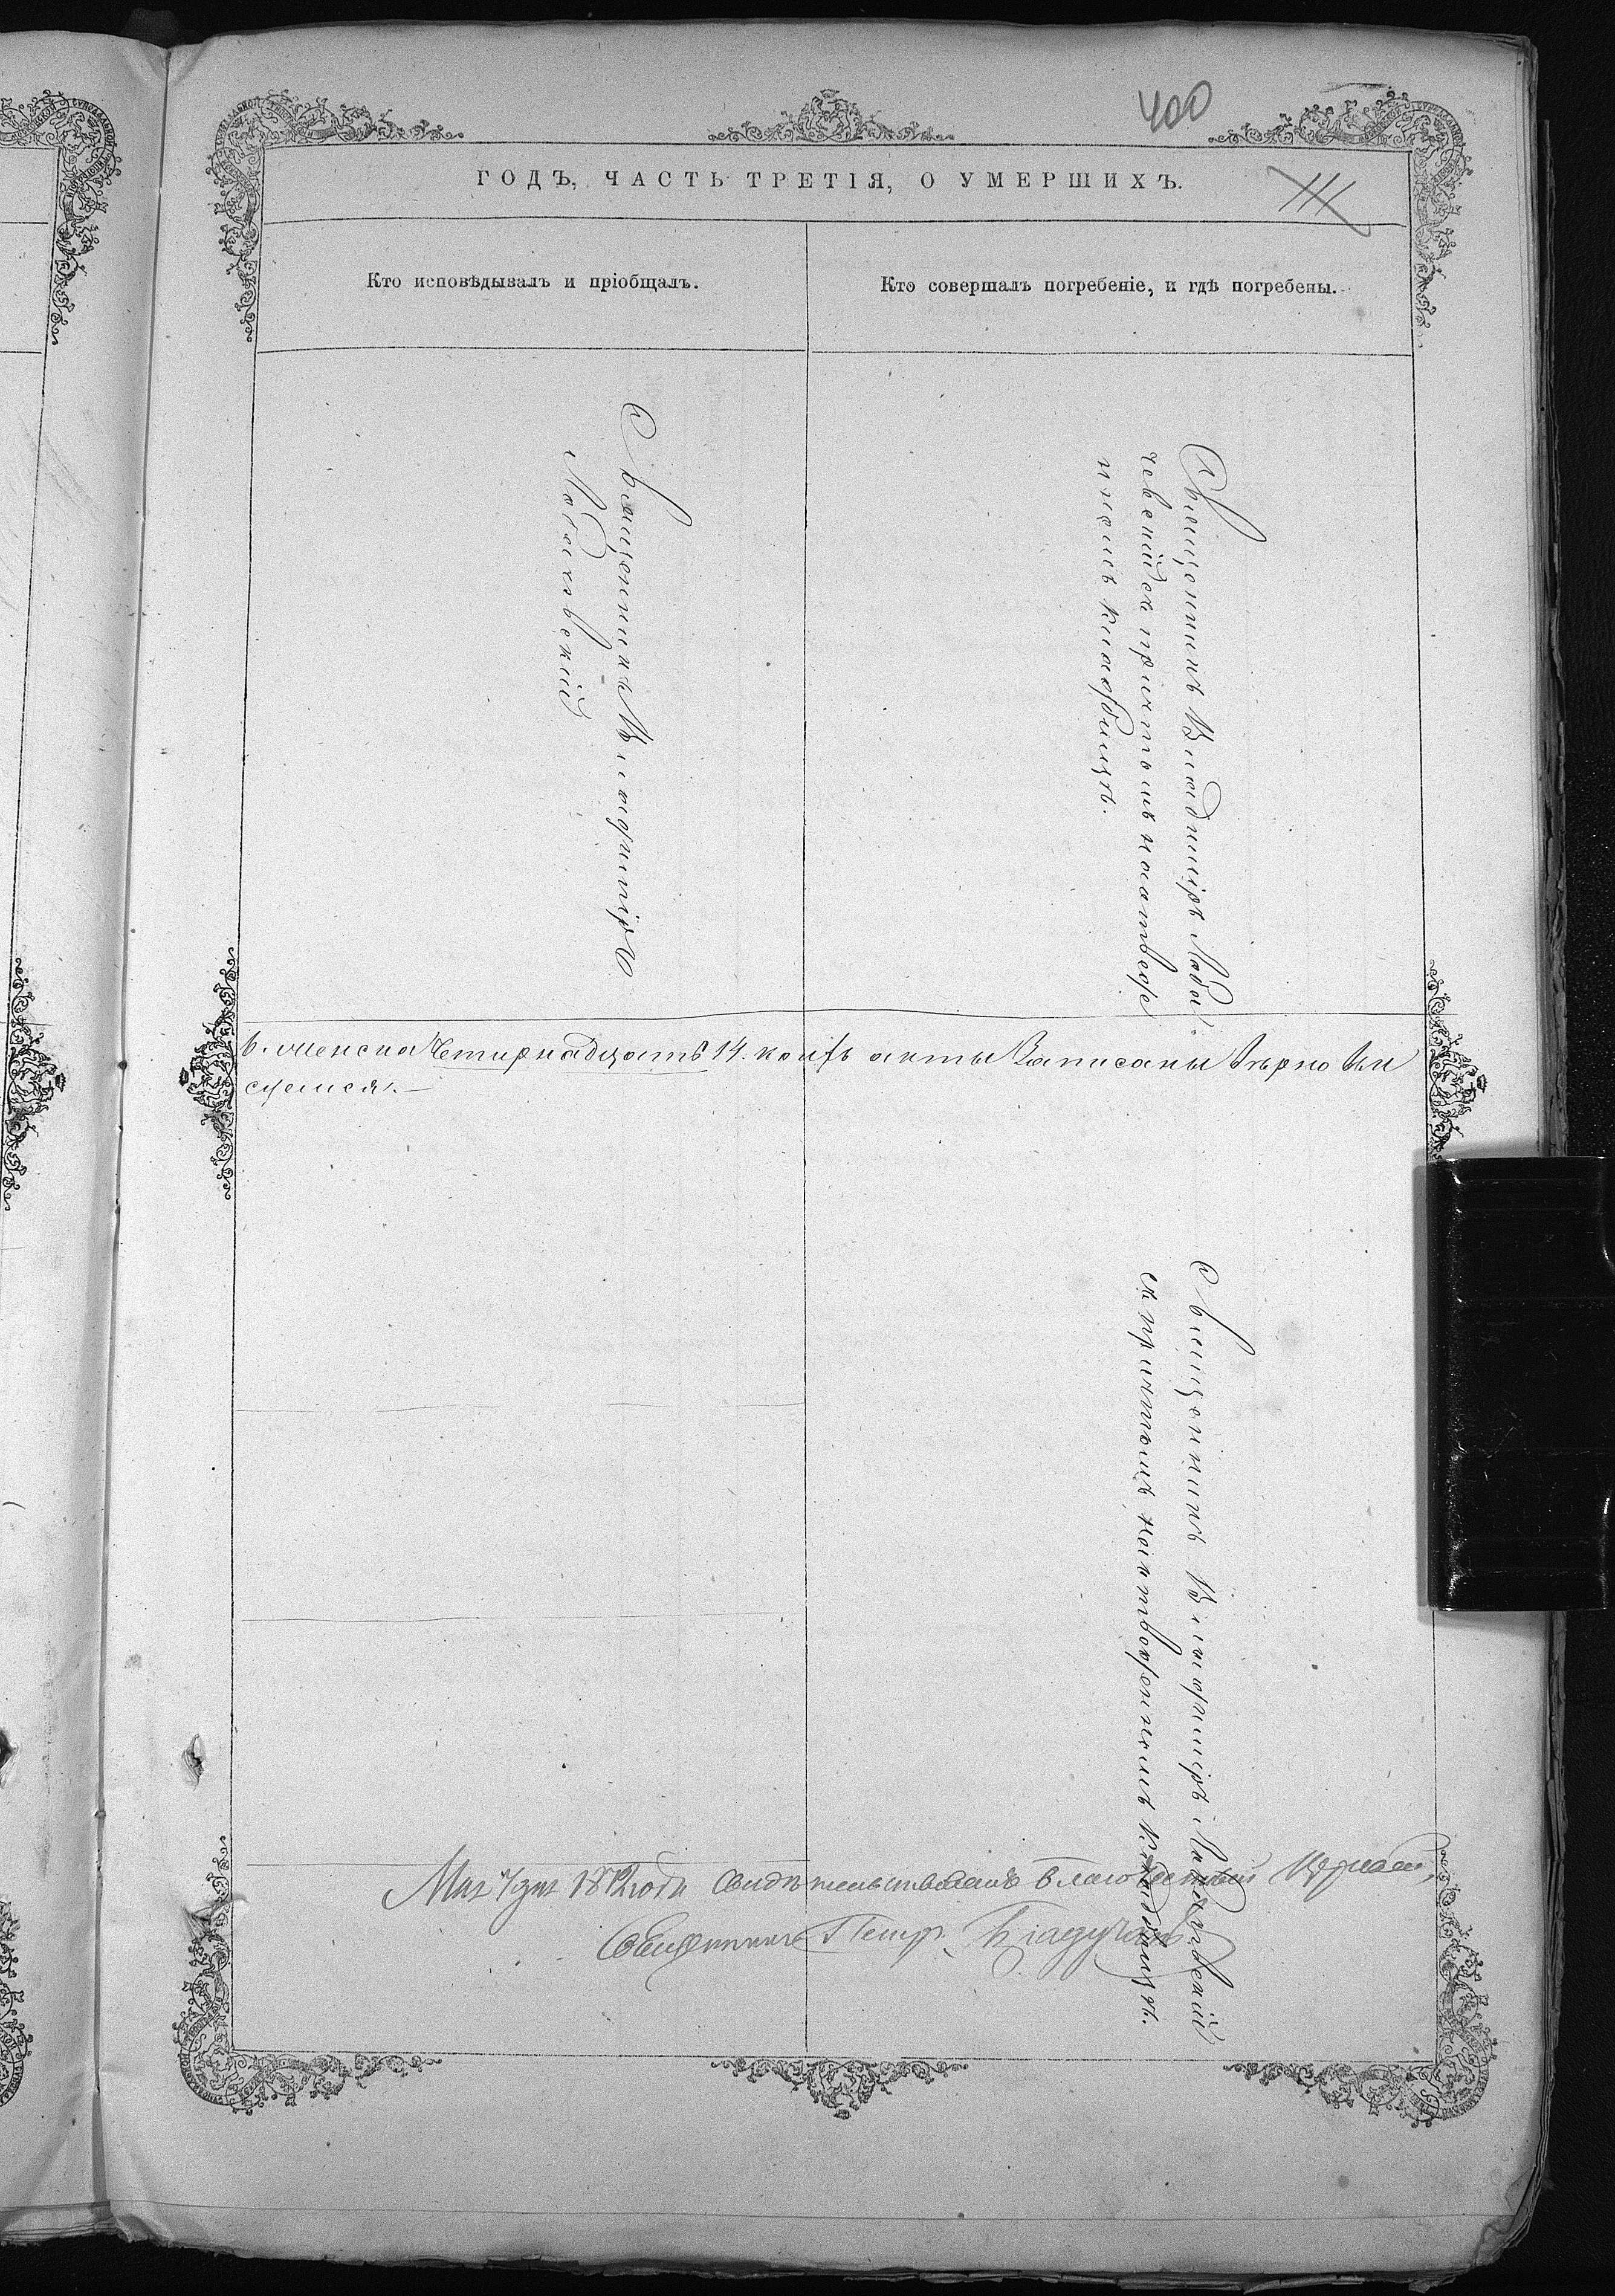 400
111
ГОДЪ, ЧАСТЬ ТРЕТІЯ, О УМЕРШИХЪ.
Кто исповѣдывалъ и пріобщалъ.
Кто совершалъ погребеніе, и гдѣ погребены.
Священникъ Владиміръ
Лобачевскій
Священникъ Владиміръ Лоба-
чевскій съ причтомъ на отведе
нномъ кладбищѣ.
женска Четирнадцать 14. коихъ акты Записаны Вѣрно
Священникъ Владиміръ Лобачевскій
съ причтомъ на отведенномъ кладбищѣ.
Мая 4 дня 1872 года Свидѣтельствовалъ Благочинный
Священникъ Петръ